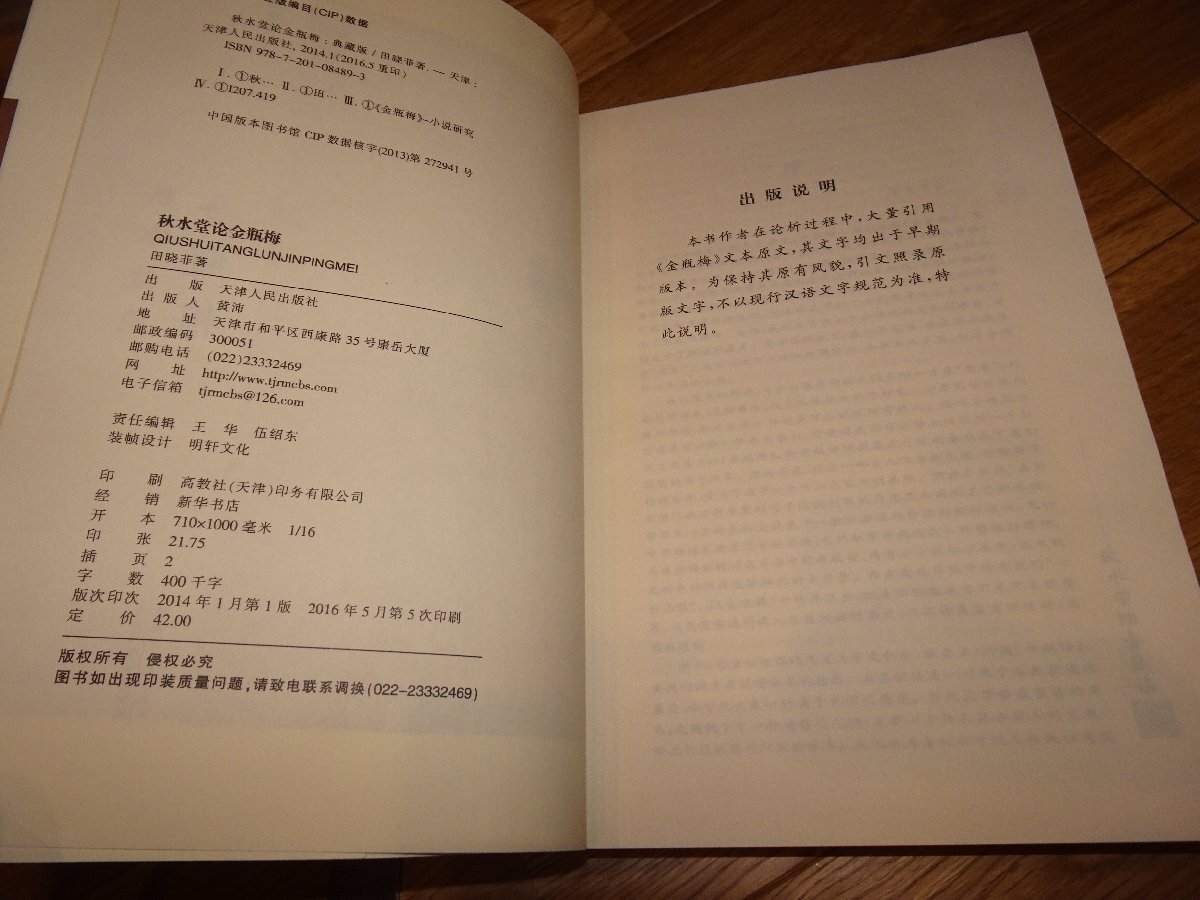 版编目(CIP)数据
秋水堂论金瓶梅：典藏版/田晓菲著. — 天津：
天津人民出版社, 2014.1(2016.5 重印)
ISBN 978-7-201-08489-3
Ⅰ. ①秋… Ⅱ. ①田… Ⅲ. ①《金瓶梅》-小说研究
Ⅳ. ①I207.419
中国版本图书馆 CIP 数据核字(2013)第 272941 号
秋水堂论金瓶梅
QIUSHUITANGLUNJINPINGMEI
田晓菲著
出 版 天津人民出版社
出 版 人 黄沛
地 址 天津市和平区西康路 35 号康岳大厦
邮政编码 300051
邮购电话 (022)23332469
网 址 http://www.tjrmcbs.com
电子信箱 tjrmcbs@126.com
责任编辑 王 华 伍绍东
装帧设计 明轩文化
印 刷 高教社(天津)印务有限公司
经 销 新华书店
开 本 710×1000 毫米 1/16
印 张 21.75
插 页 2
字 数 400 千字
版次印次 2014 年 1 月第 1 版 2016 年 5 月第 5 次印刷
定 价 42.00
版权所有 侵权必究
图书如出现印装质量问题，请致电联系调换(022-23332469)
出版说明
本书作者在论析过程中，大量引用
《金瓶梅》文本原文，其文字均出于早期
版本。为保持其原有风貌，引文照录原
版文字，不以现行汉语文字规范为准，特
此说明。